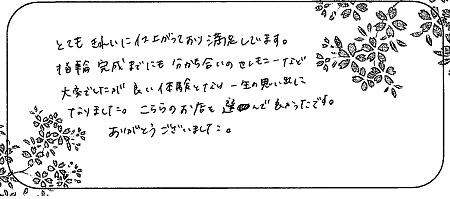 とても きれいに仕上がっており満足しています。
指輪 完成までにも 分かち合いの セレモニーなど
大変でしたが 良い体験となり 一生の思い出に
なりました。こちらのお店を 選んで良かったです。
ありがとうございました。